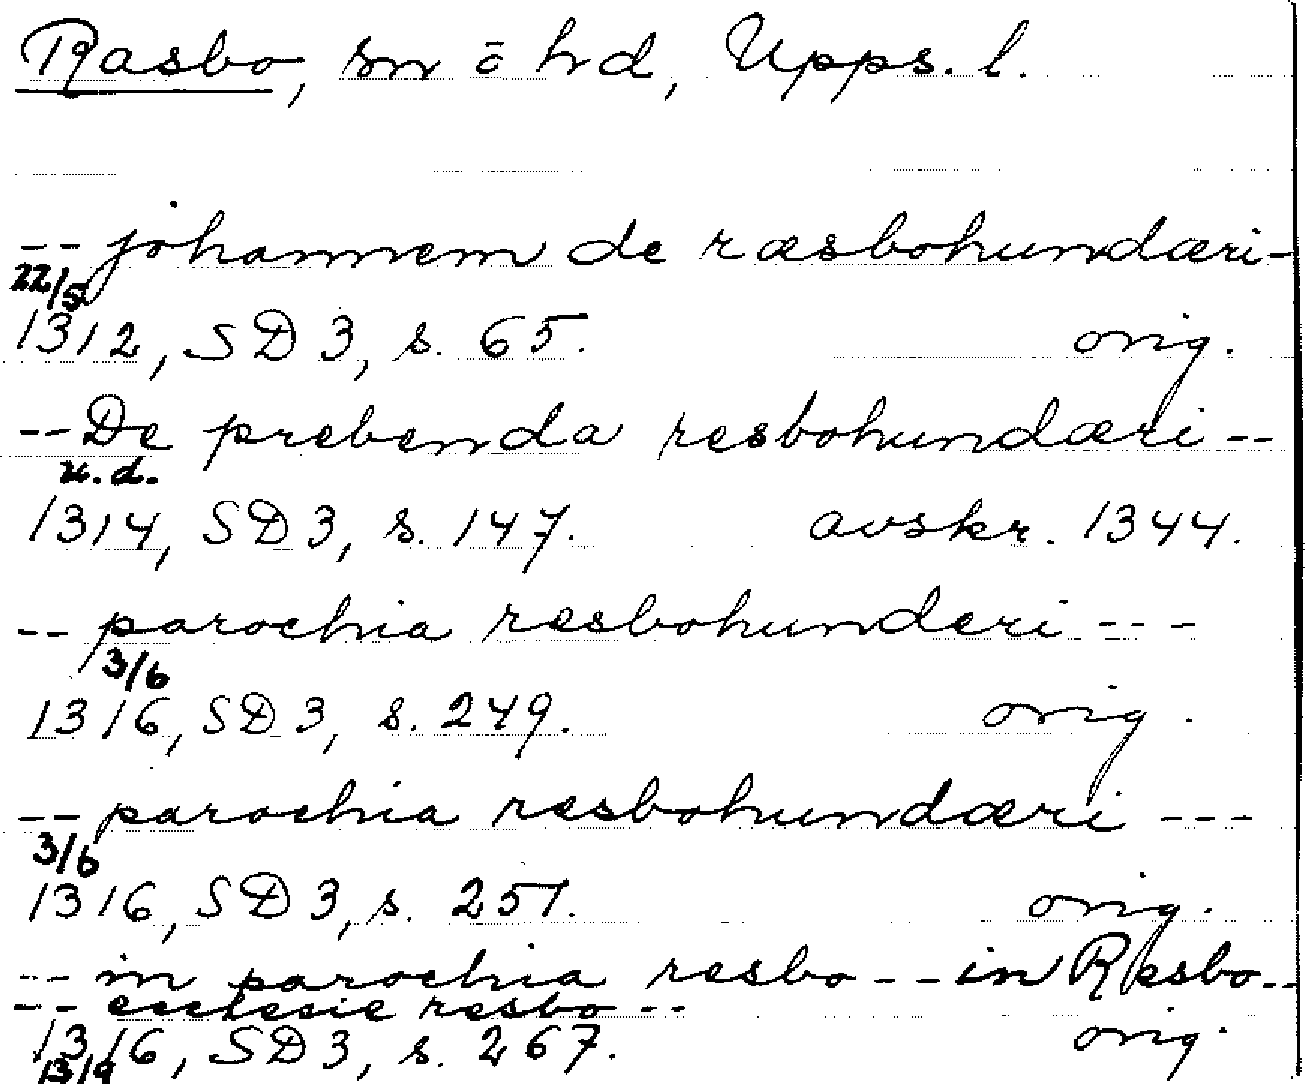 Rasbo, sn o hd, Upps. l.
-- johannem de ræsbohundæri-
22/5
1312, SD 3, s. 65. orig.
-- De prebenda resbohundæri --
u.d.
1314, SD 3, s. 147. avskr. 1344.
-- parochia resbohunderi ---
3/6
1316, SD 3, s. 249. orig.
-- parochia resbohundæri ---
3/6
1316, SD 3, s. 251. orig.
-- in parochia resbo -- in Resbo --
-- ecclesie resbo --
1316, SD 3, s. 267. orig.
13/9